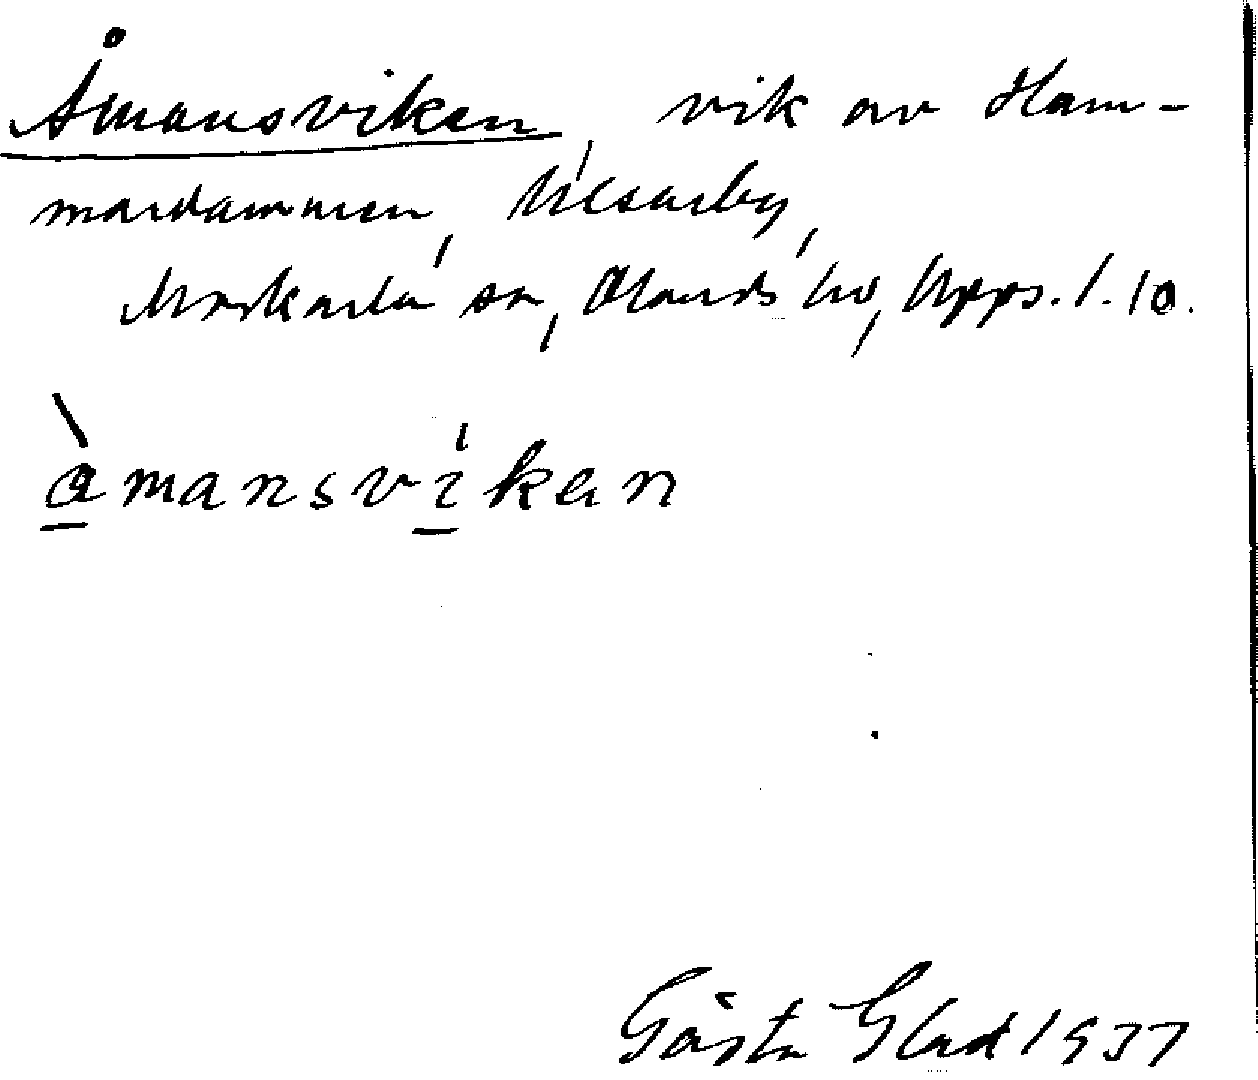 Åmansviken, vik av Ham-
mardammen, Ulsarby,
Morkarla sn, Olands hd, Upps. l. 10.
åmansvikən
Gösta Glad 1937